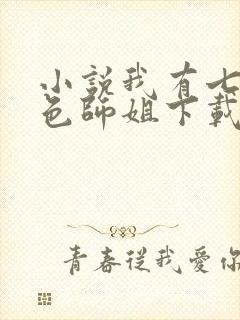 小説我有七
色師姐下載
青春從我愛你